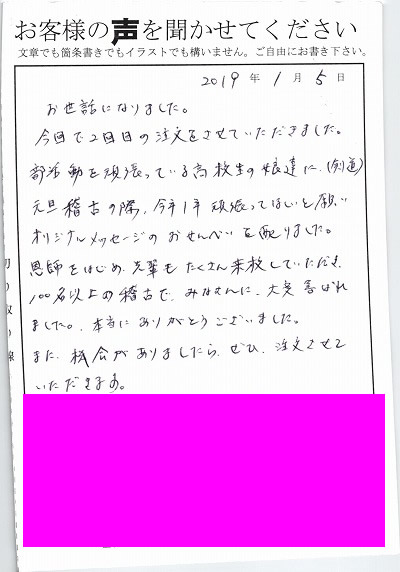 お客様の声を聞かせてください
文章でも箇条書きでもイラストでも構いません。ご自由にお書き下さい。
2019年1月5日
お世話になりました。
今回で2回目の注文をさせていただきました。
部活動を頑張っている高校生の娘達に、(剣道)
元旦稽古の際、今年1年頑張ってほしいと願い
オリジナルメッセージのおせんべいを配りました。
恩師をはじめ、先輩もたくさん来校していただき、
100名以上の稽古で、みなさんに、大変喜ばれ
ました。本当にありがとうございました。
また、機会がありましたら、ぜひ、注文させて
いただきます。
切り取り線